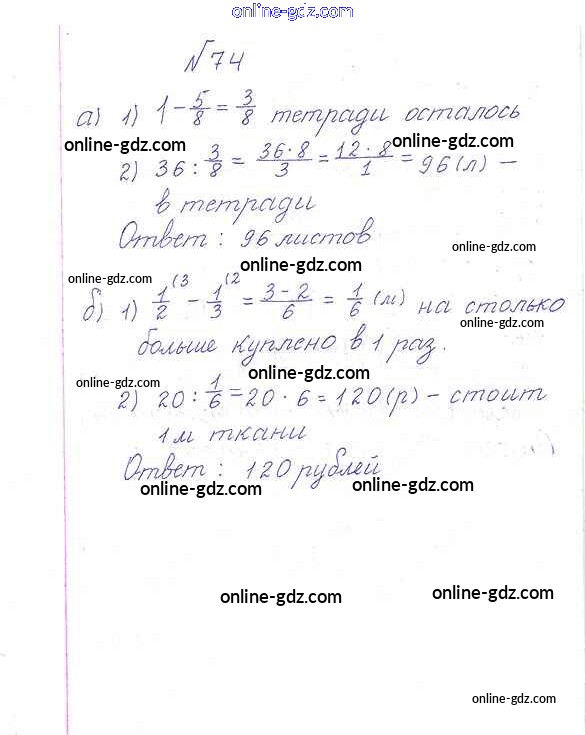 online-gdz.com
№74
а) 1) 1 - 5/8 = 3/8 тетради осталось
online-gdz.com online-gdz.com
2) 36 : 3/8 = 36·8/3 = 12·8/1 = 96 (л) -
в тетради
Ответ : 96 листов
online-gdz.com
online-gdz.com
online-gdz.com
б) 1) 1/2 (3 - 1/3 (2 = 3-2/6 = 1/6 (м) на столько
online-gdz.com
больше куплено в 1 раз.
online-gdz.com
2) 20 : 1/6 = 20 · 6 = 120 (р) - стоит
1 м ткани
Ответ : 120 рублей
online-gdz.com online-gdz.com
online-gdz.com online-gdz.com
online-gdz.com